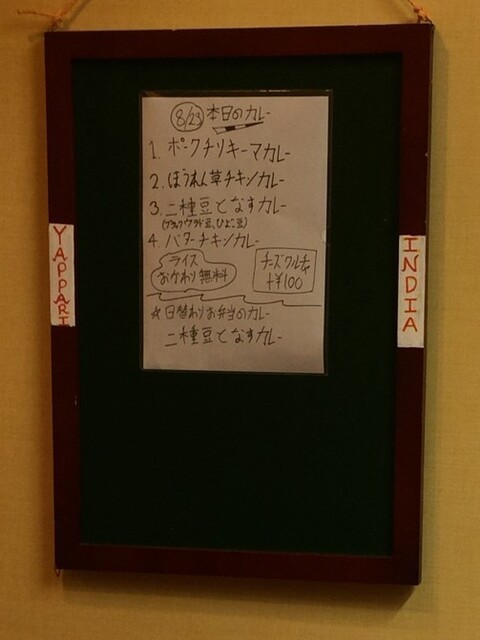 8/23 本日のカレー
1. ポークチリキーマカレー
2. ほうれん草チキンカレー
3. 二種豆となすカレー
(ブラックウラド豆、ひよこ豆)
4. バターチキンカレー
ライス
おかわり無料
チーズクルチャ
+¥100
☆日替わりお弁当のカレー
二種豆となすカレー
YAPPARI
INDIA